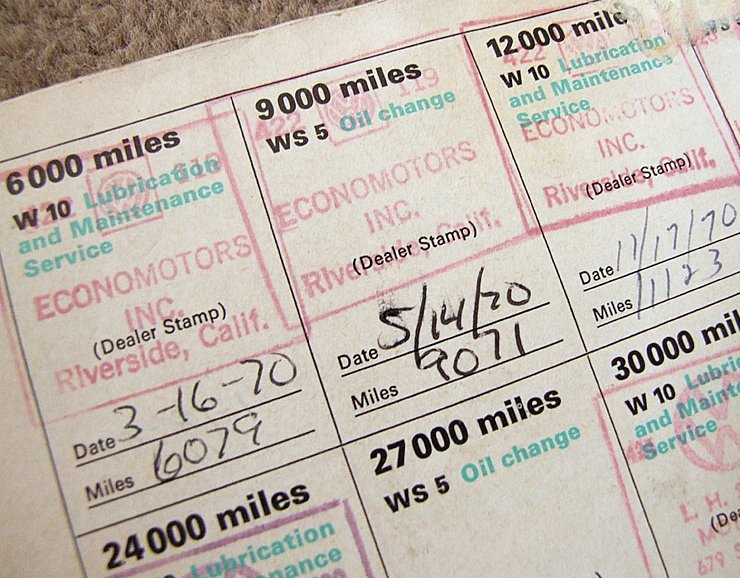 6000 miles
W 10 Lubrication
and Maintenance
Service
ECONOMOTORS
INC.
(Dealer Stamp)
Riverside, Calif.
Date 3-16-70
Miles 6079
9000 miles
WS 5 Oil change
422 119
ECONOMOTORS
INC.
(Dealer Stamp)
Riverside, Calif.
Date 5/14/70
Miles 9071
12000 mile
W 10 Lubrication
and Maintenance
Service
422
ECONOMOTORS
INC.
(Dealer Stamp)
Riverside, Calif.
Date 11/17/70
Miles 11123
24000 miles
Lubrication
27000 miles
WS 5 Oil change
30000 mil
W 10 Lubric
and Mainte
Service
L. H.
(Dea
679